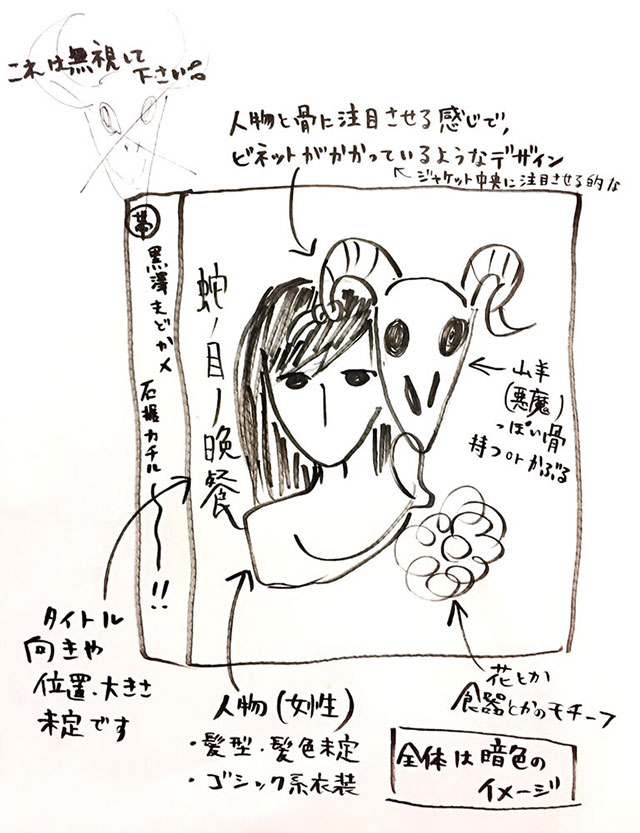 これは無視して
下さい。
人物と骨に注目させる感じで、
ビネットがかかっているようなデザイン
ジャケット中央に注目させる的な
帯
黒澤まどか×
石掘カチル
!!
蛇ノ目ノ晩餐
山羊
(悪魔)
っぽい骨
持つorかぶる
タイトル
向きや
位置・大きさ
未定です
人物(女性)
・髪型・髪色未定
・ゴシック系衣装
花とか
食器とかのモチーフ
全体は暗色の
イメージ